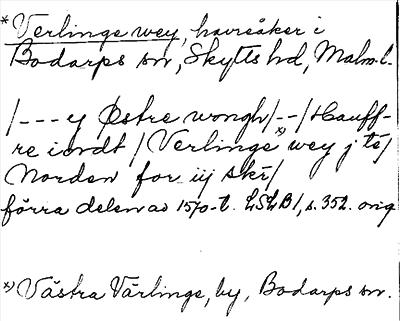 * Verlinge wey, havreåker i
Bodarps sn, Skytts hd, Malm. l.
/--- y Østre wongh/--/Hauff-
re iordt / Verlinge x) wey j tē/
Norden for iij skē/
förra delen av 1570-t. LSLB1, s. 352. orig
x) Västra Värlinge, by, Bodarps sn.